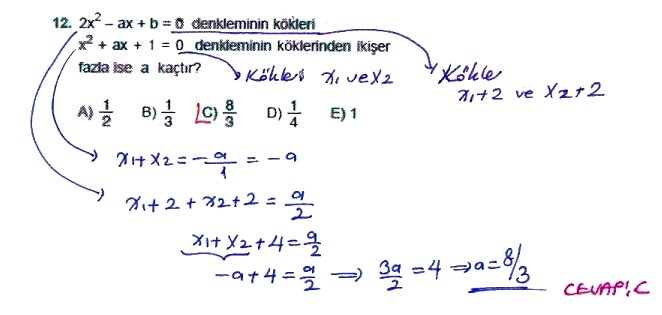 12. 2x² – ax + b = 0 denkleminin kökleri
x² + ax + 1 = 0 denkleminin köklerinden ikişer
fazla ise a kaçtır?
Kökleri x₁ ve x₂
Kökle
x₁+2 ve x₂+2
A) 1/2 B) 1/3 C) 8/3 D) 1/4 E) 1
x₁+x₂ = -a/1 = -a
x₁+2 + x₂+2 = a/2
x₁+x₂+4 = a/2
-a+4 = a/2 ⇒ 3a/2 = 4 ⇒ a = 8/3
CEVAP: C